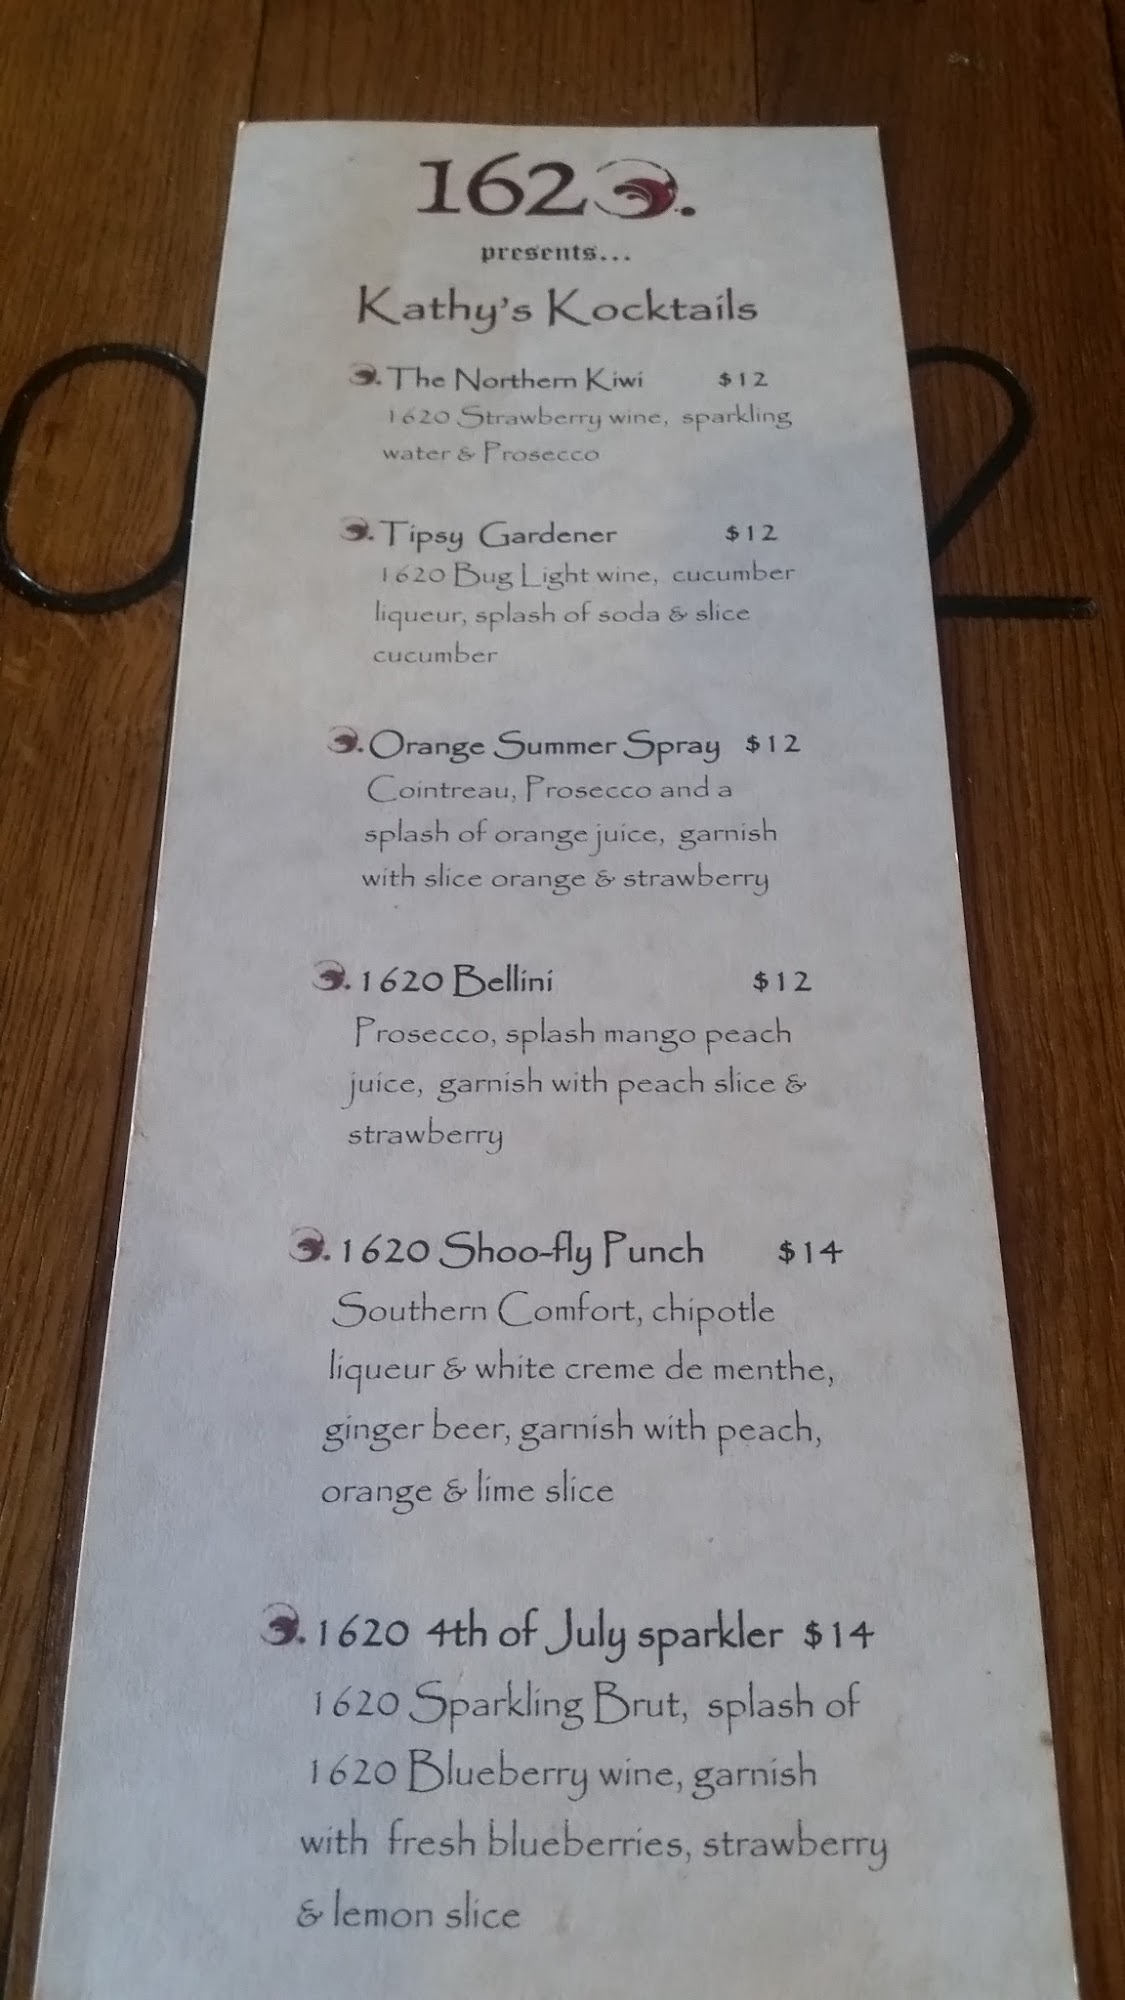 1620.
presents...
Kathy's Kocktails
The Northern Kiwi $12
1620 Strawberry wine, sparkling
water & Prosecco
Tipsy Gardener $12
1620 Bug Light wine, cucumber
liqueur, splash of soda & slice
cucumber
Orange Summer Spray $12
Cointreau, Prosecco and a
splash of orange juice, garnish
with slice orange & strawberry
1620 Bellini $12
Prosecco, splash mango peach
juice, garnish with peach slice &
strawberry
1620 Shoo-fly Punch $14
Southern Comfort, chipotle
liqueur & white creme de menthe,
ginger beer, garnish with peach,
orange & lime slice
1620 4th of July sparkler $14
1620 Sparkling Brut, splash of
1620 Blueberry wine, garnish
with fresh blueberries, strawberry
& lemon slice
0 2